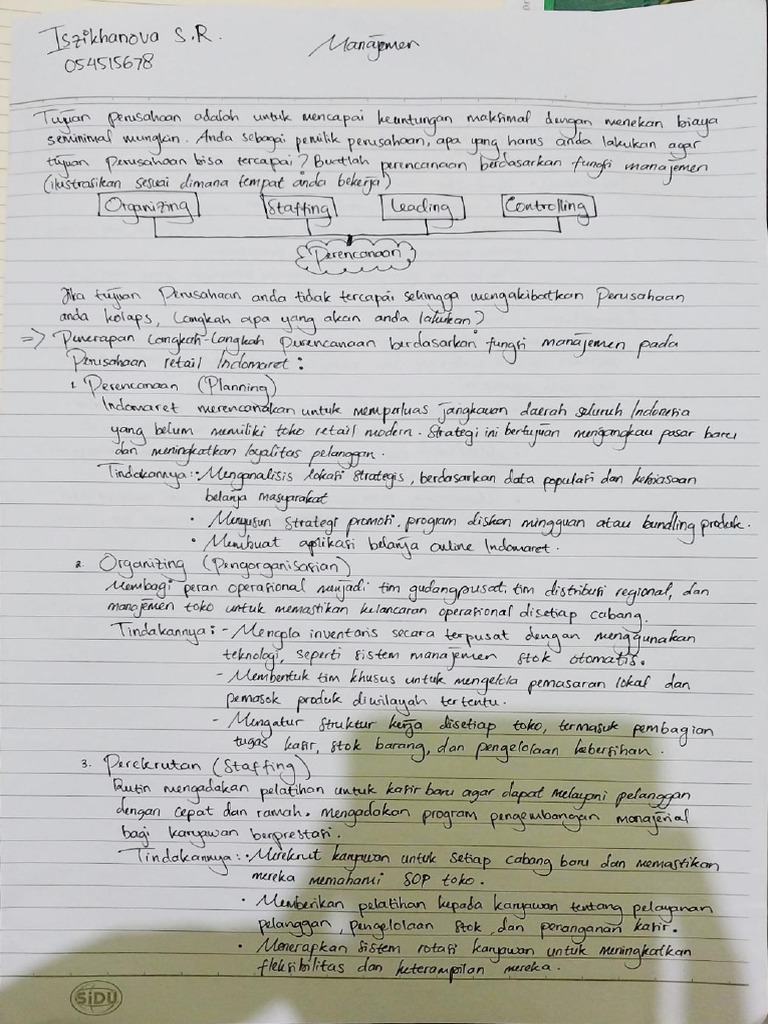 Iszikhanova S.R.
Manajemen
054515678
Tujuan perusahaan adalah untuk mencapai keuntungan maksimal dengan menekan biaya
seminimal mungkin. Anda sebagai pemilik perusahaan, apa yang harus anda lakukan agar
tujuan perusahaan bisa tercapai? Buatlah perencanaan berdasarkan fungsi manajemen
(ilustrasikan sesuai dimana tempat anda bekerja)
Organizing Staffing Leading Controlling
Perencanaan
Jika tujuan Perusahaan anda tidak tercapai sehingga mengakibatkan Perusahaan
anda kolaps, Langkah apa yang akan anda lakukan?
=> Penerapan Langkah-Langkah perencanaan berdasarkan fungsi manajemen pada
Perusahaan retail Indomaret :
1. Perencanaan (Planning)
Indomaret merencanakan untuk memperluas jangkauan daerah seluruh Indonesia
yang belum memiliki toko retail modern. Strategi ini bertujuan mengangkau pasar baru
dan meningkatkan loyalitas pelanggan.
Tindakannya : • Menganalisis lokasi strategis, berdasarkan data populasi dan kebiasaan
belanja masyarakat
• Menyusun strategi promosi, program diskon mingguan atau bundling produk.
• Membuat aplikasi belanja online Indomaret.
2. Organizing (Pengorganisasian)
Membagi peran operasional menjadi tim gudang pusat, tim distribusi regional, dan
manajemen toko untuk memastikan kelancaran operasional disetiap cabang.
Tindakannya : - Mengola inventaris secara terpusat dengan menggunakan
teknologi, seperti sistem manajemen stok otomatis.
- Membentuk tim khusus untuk mengelola pemasaran lokal dan
pemasok produk diwilayah tertentu.
- Mengatur struktur kerja disetiap toko, termasuk pembagian
tugas kasir, stok barang, dan pengelolaan kebersihan.
3. Perekrutan (Staffing)
Rutin mengadakan pelatihan untuk kasir baru agar dapat melayani pelanggan
dengan cepat dan ramah. mengadakan program pengembangan manajerial
bagi karyawan berprestasi.
Tindakannya : • Merekrut karyawan untuk setiap cabang baru dan memastikan
mereka memahami SOP toko.
• Memberikan pelatihan kepada karyawan tentang pelayanan
pelanggan, pengelolaan stok, dan penanganan kasir.
• Menerapkan sistem rotasi karyawan untuk meningkatkan
fleksibilitas dan keterampilan mereka.
SiDU